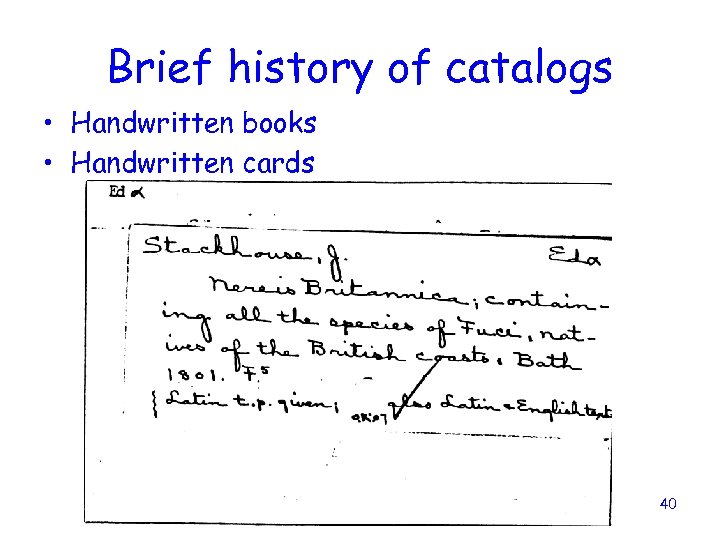 Brief history of catalogs
• Handwritten books
• Handwritten cards
Ed α
Stackhouse, J. Edα
Nereis Britannica; contain-
ing all the species of Fuci, nat-
ives of the British coasts. Bath
1801. F⁵
{ Latin t.p. given; also Latin & English text
40